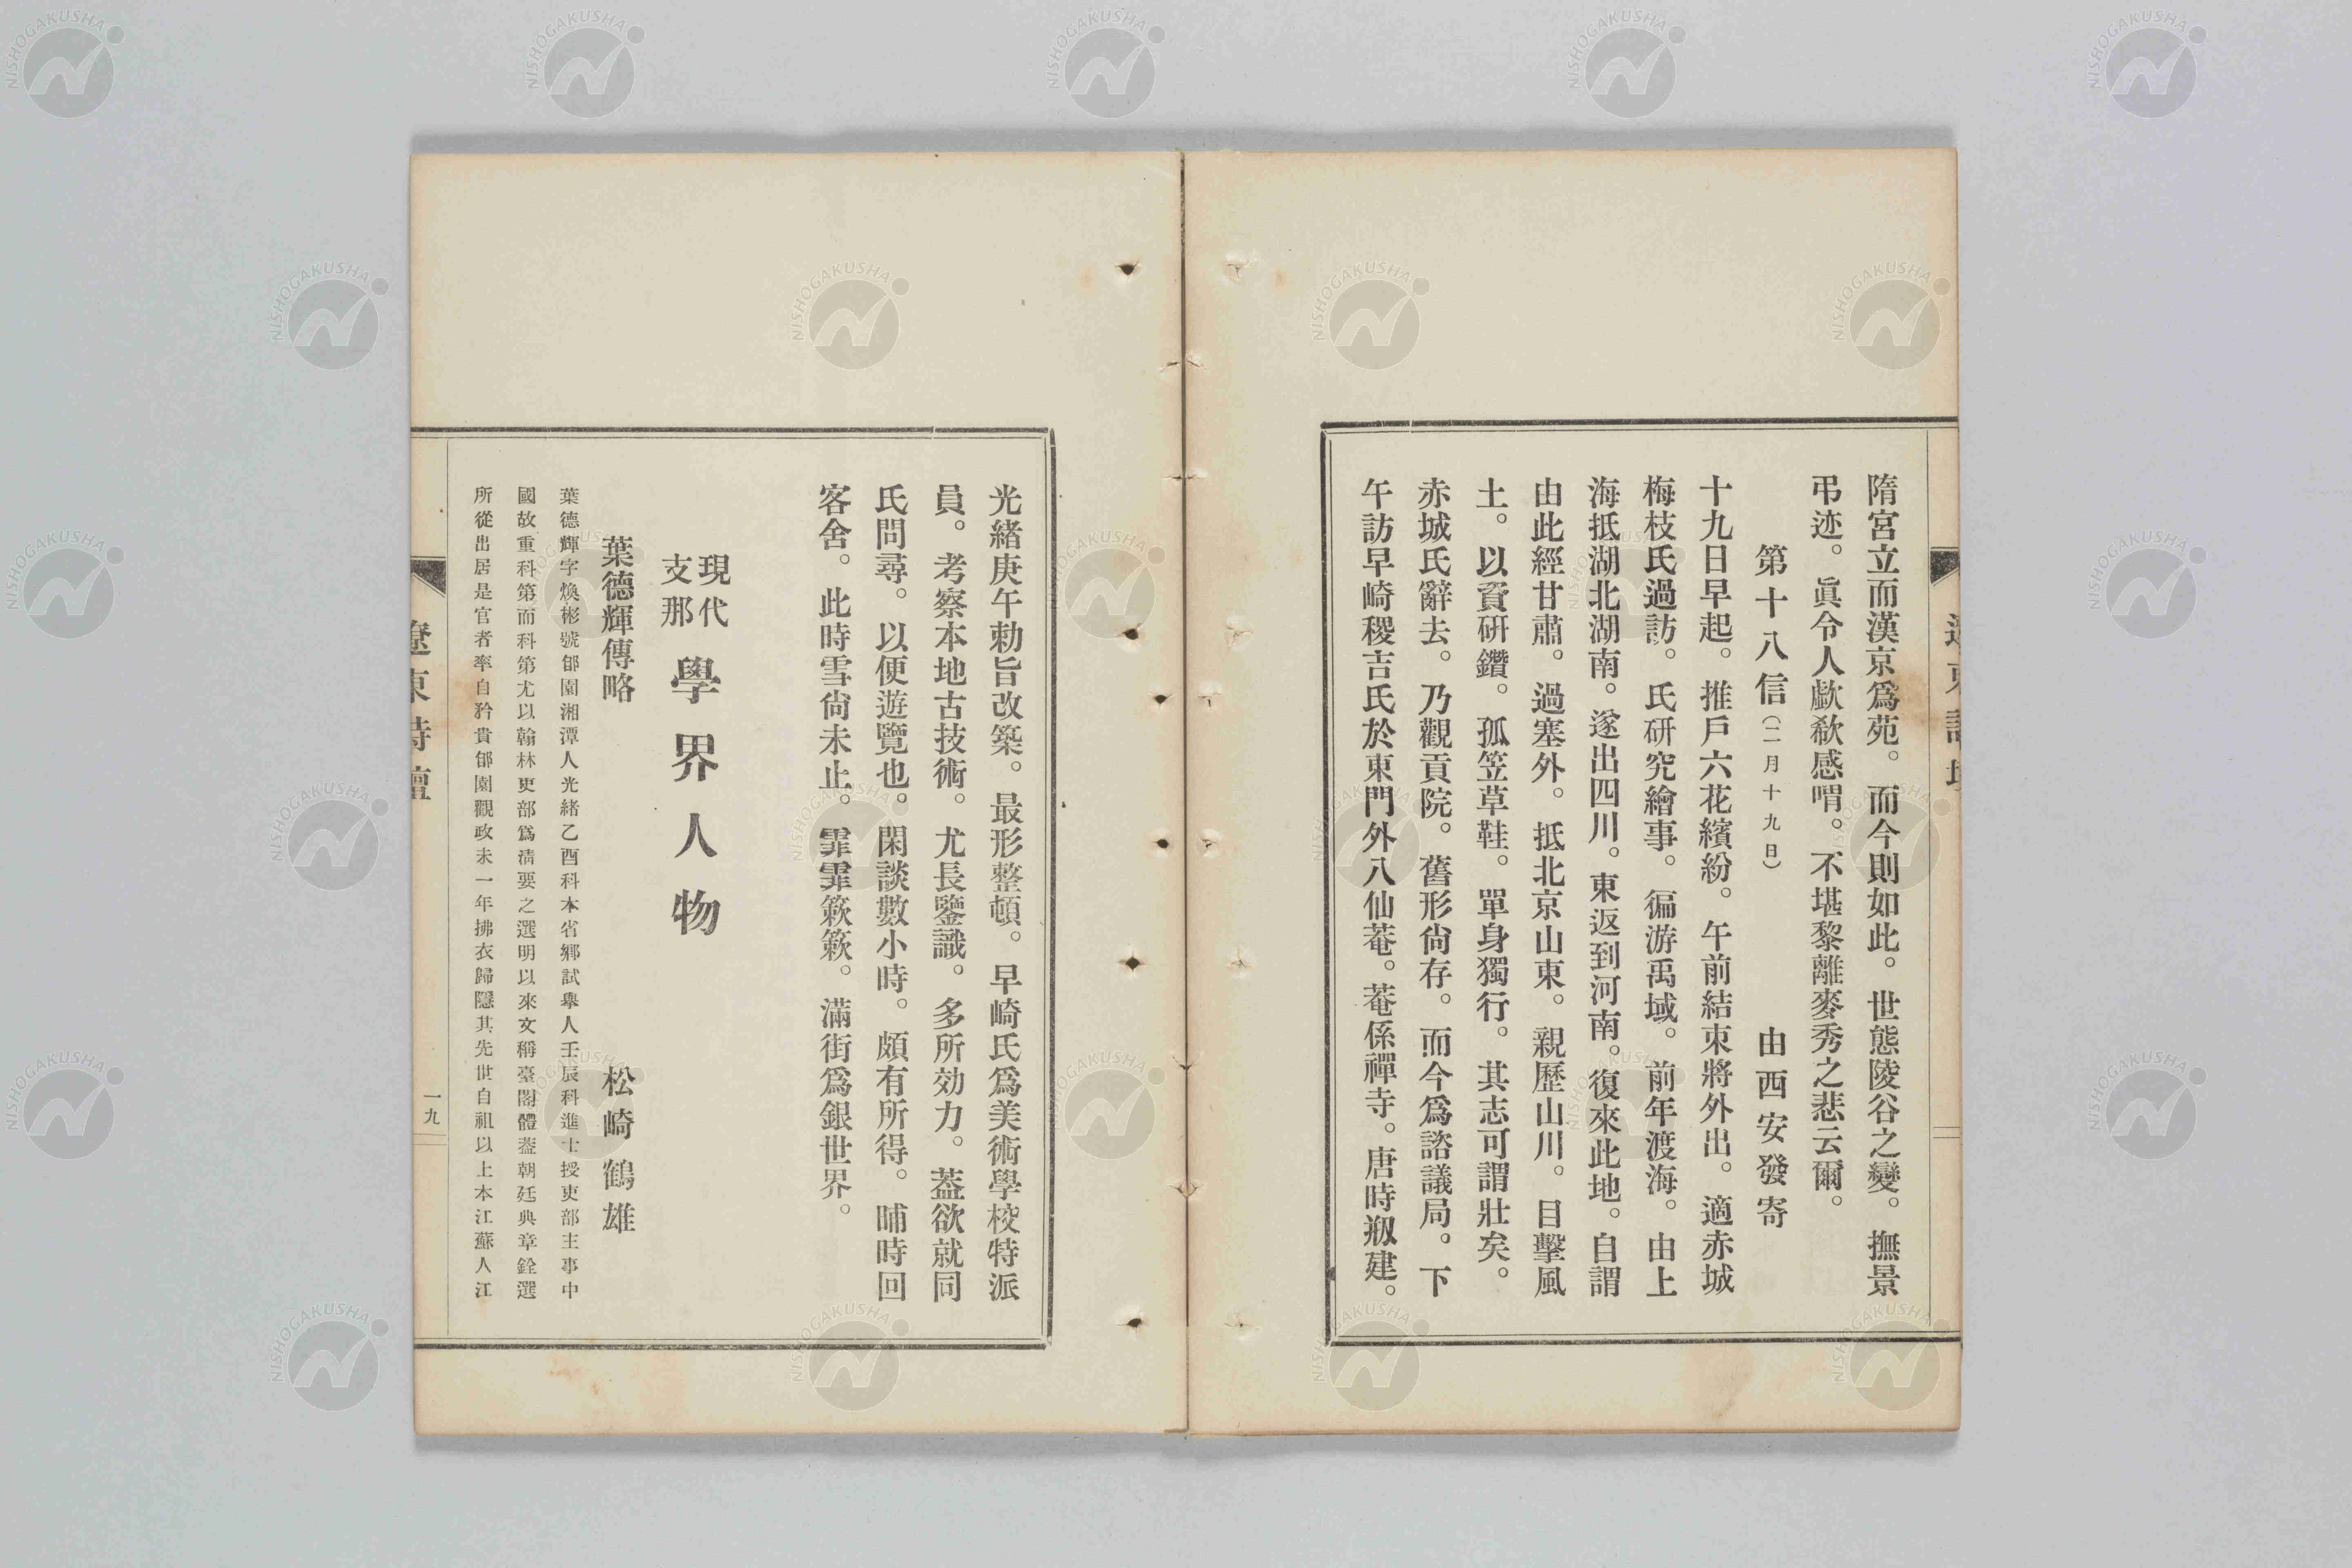 隋宮立而漢京爲苑。而今則如此。世態陵谷之變。撫景
弔迹。眞令人歔欷感喟。不堪黎離麥秀之悲云爾。
第十八信(二月十九日) 由西安發寄
十九日早起。推戶六花繽紛。午前結束將外出。適赤城
梅枝氏過訪。氏研究繪事。徧游禹域。前年渡海。由上
海抵湖北湖南。遂出四川。東返到河南。復來此地。自謂
由此經甘肅。過塞外。抵北京山東。親歷山川。目擊風
土。以資研鑽。孤笠草鞋。單身獨行。其志可謂壯矣。
赤城氏辭去。乃觀貢院。舊形尙存。而今爲諮議局。下
午訪早崎稷吉氏於東門外八仙菴。菴係禪寺。唐時剏建。
光緒庚午勅旨改築。最形整頓。早崎氏爲美術學校特派
員。考察本地古技術。尤長鑒識。多所効力。葢欲就同
氏問尋。以便遊覽也。閑談數小時。頗有所得。晡時回
客舍。此時雪尙未止。霏霏簌簌。滿街爲銀世界。
現代支那 學界人物
葉德輝傳略 松崎鶴雄
葉德輝字煥彬號郋園湘潭人光緒乙酉科本省鄉試舉人壬辰科進士授吏部主事中
國故重科第而科第尤以翰林吏部爲淸要之選明以來文稱臺閣體葢朝廷典章銓選
所從出居是官者率自矜貴郋園觀政未一年拂衣歸隱其先世自祖以上本江蘇人江
遼東詩壇
一九
NISHOGAKUSHA